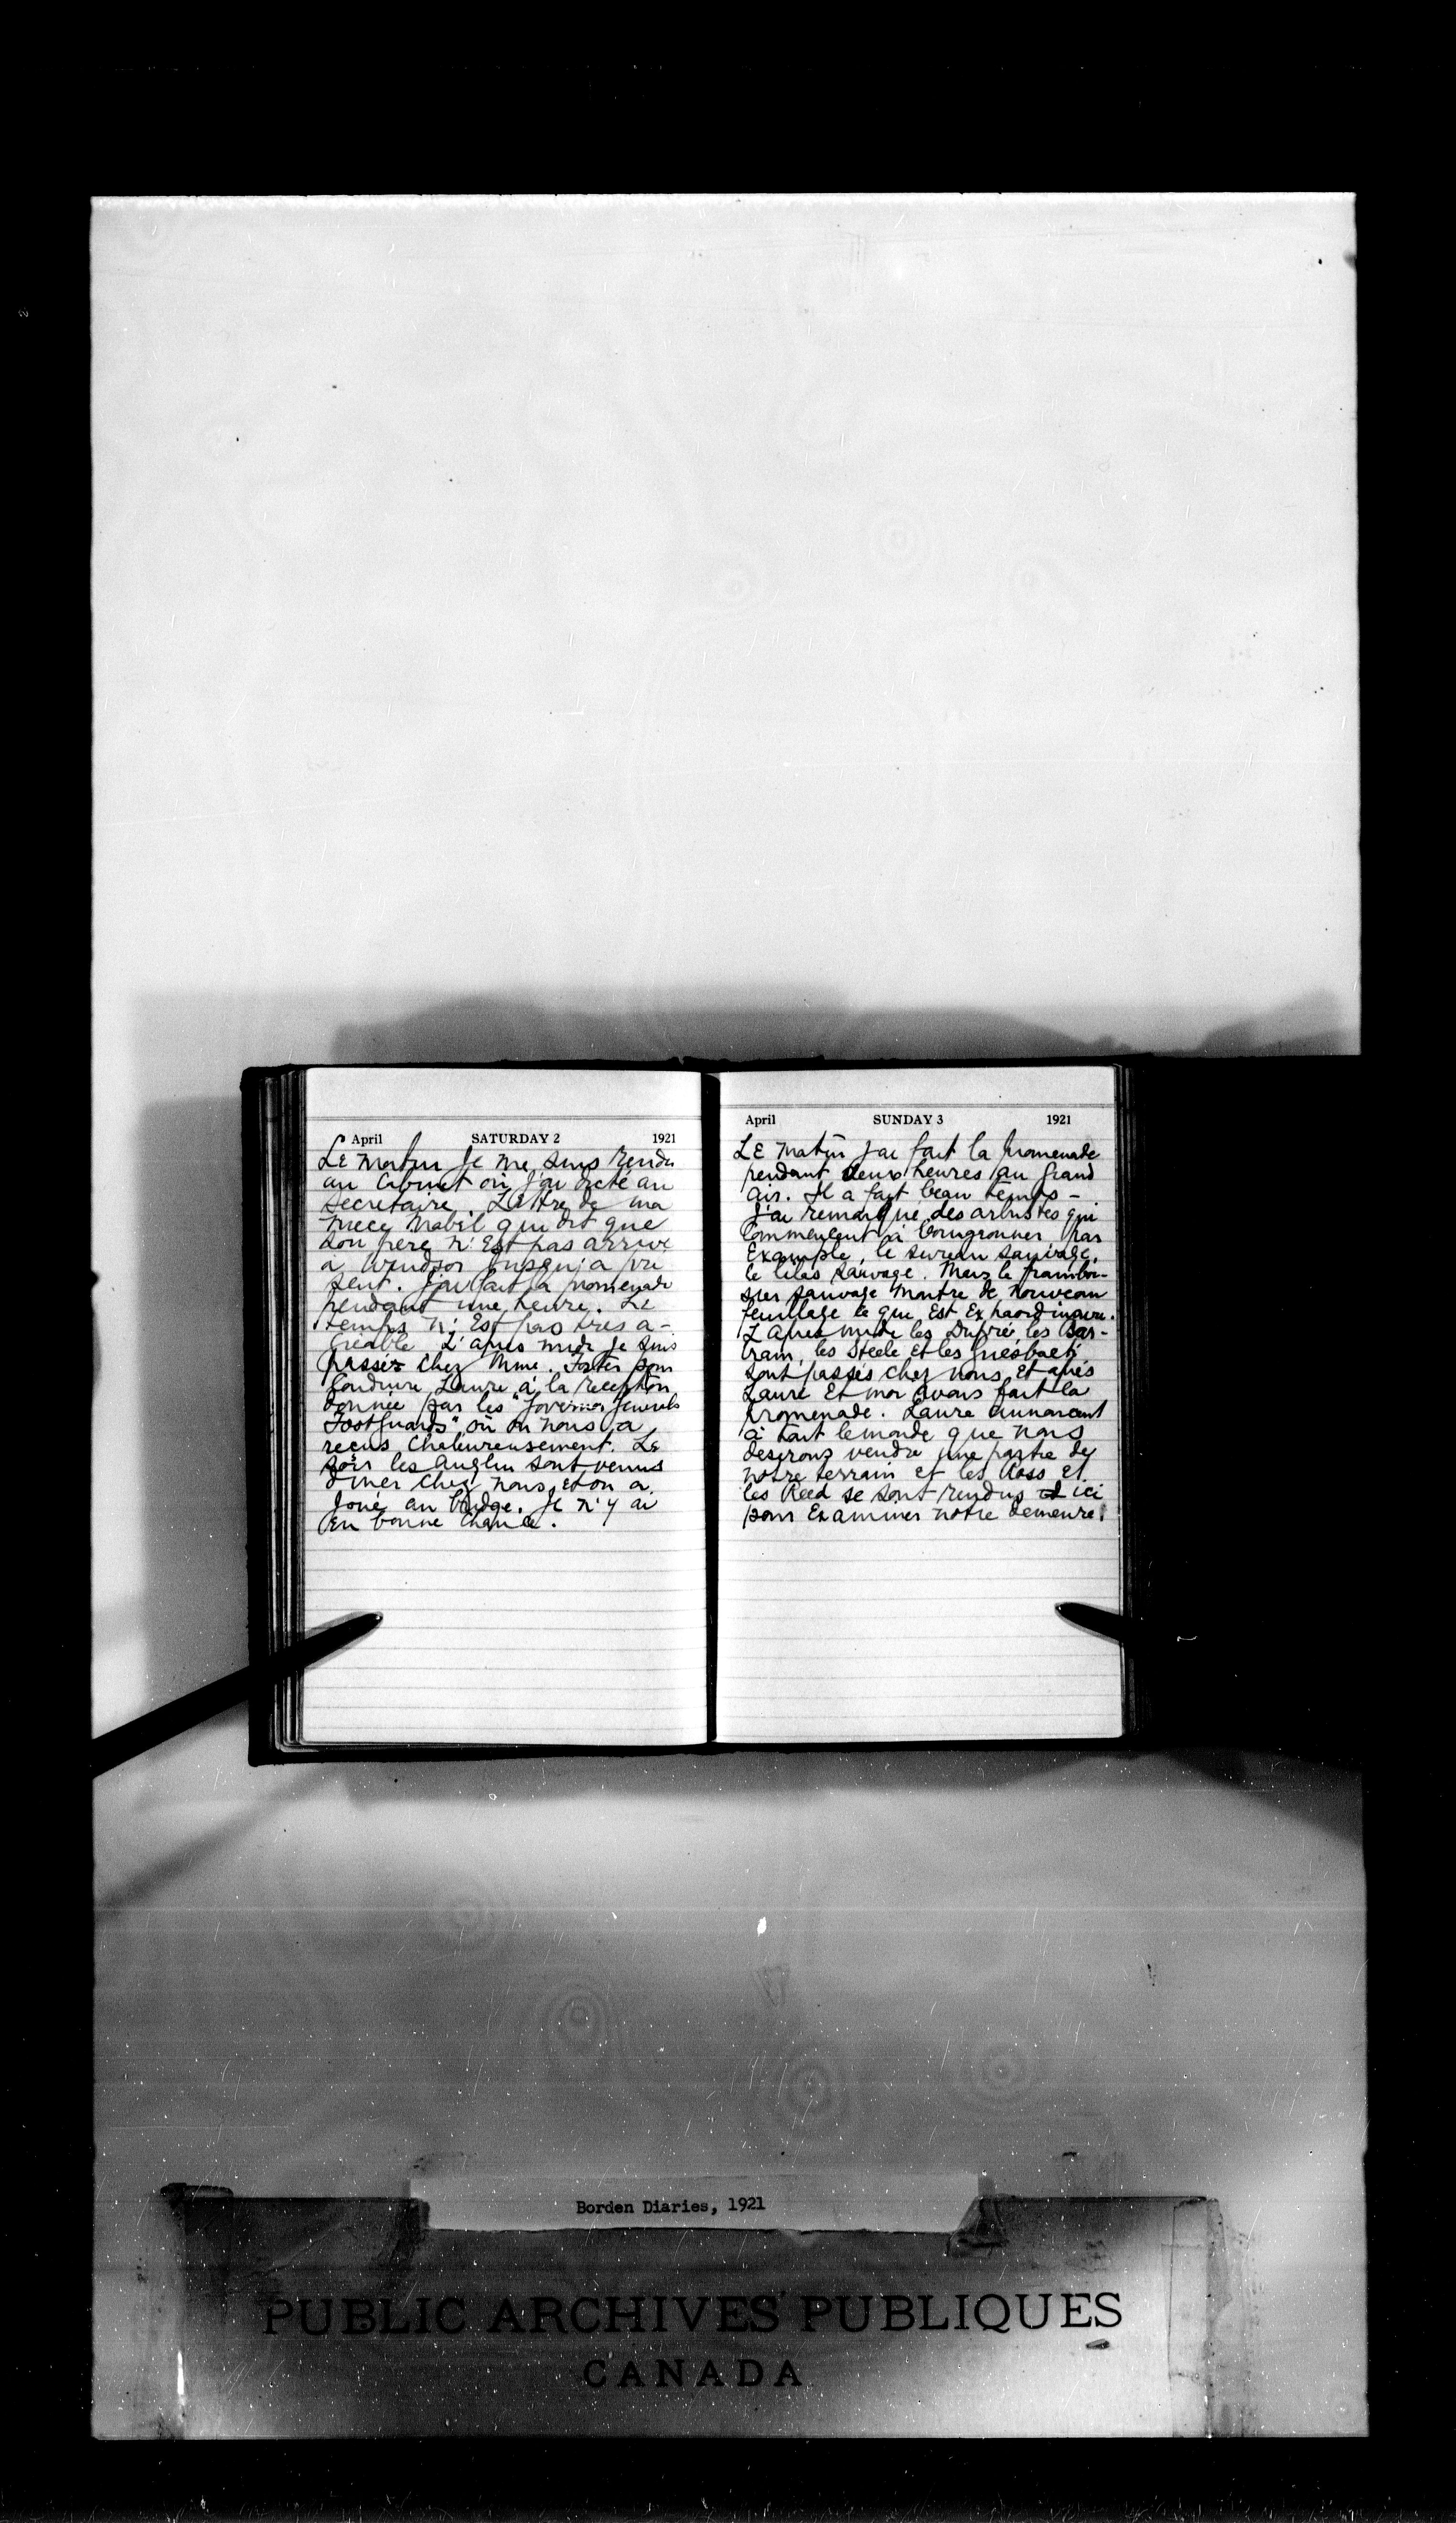 April SATURDAY 2 1921
Le matin je me suis rendu
au Cabinet où j'ai dicté au
secretaire. Lettre de ma
niece Mabel qui dit que
son pere n'est pas arrivé
a Windsor jusqu'a pre
sent. J'ai fait la promenade
pendant une heure. Le
temps n'est pas tres a-
greable L'apres midi je suis
passé chez Mme. Foster pour
conduire Laure à la reception
donnée par les "Governor Generals
Footguards" où on nous a
recus chaleureusement. Le
soir les Anglin sont venus
diner chez nous et on a
joué au bridge. Je n'y ai
eu bonne chance.
April SUNDAY 3 1921
Le matin j'ai fait la promenade
pendant deux heures au grand
air. Il a fait beau temps -
J'ai remarqué des arbustes qui
commencent à bourgronner par
Example, le sureau sauvage,
le lilas sauvage. Mais le framboi-
sier sauvage montre de nouveau
feuillage ce que est extraordinaire.
L'apres midi les Dupré, les Bar-
tram, les Steele et les
sont passés chez nous et après
Laure et moi avons fait la
promenade. Laure annoncent
à tout le monde que nous
desirons vendre une partie de
notre terrain et les Ross et
les Reed se sont rendus ici
pour examiner notre demeure.
Borden Diaries, 1921
PUBLIC ARCHIVES PUBLIQUES
CANADA